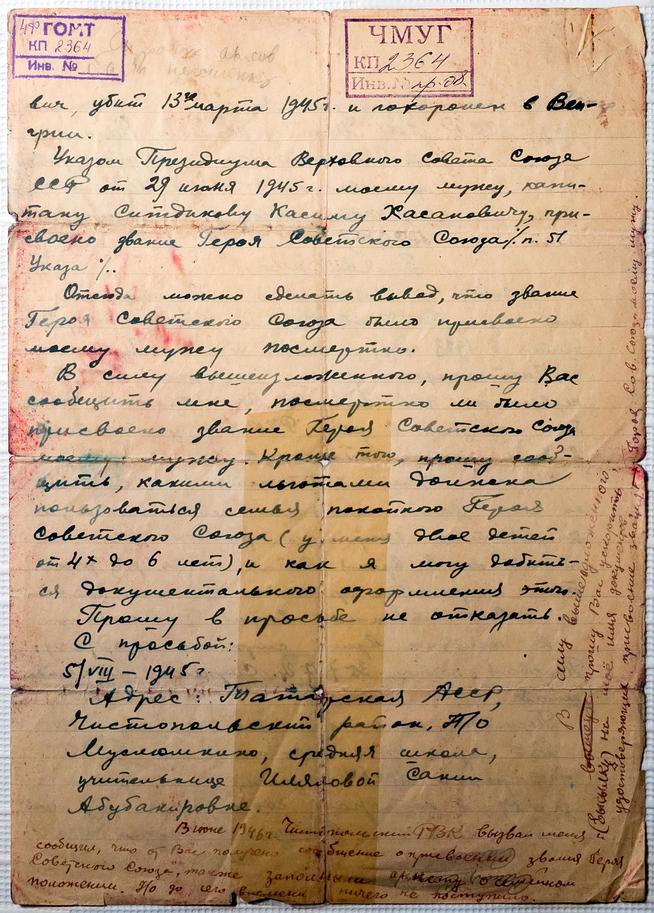 ГОМТ
КП 2364
Инв. №
ЧМУГ
КП 2364
Инв. №
вич, убит 13го марта 1945г. и похоронен в Вен-
грии.
Указом Президиума Верховного Совета Союза
ССР от 29 июня 1945г. моему мужу, капи-
тану Ситдикову Касиму Хасановичу, при-
своено звание Героя Советского Союза /. п. 51
Указа ./.
Отсюда можно сделать вывод, что звание
Героя Советского Союза было присвоено
моему мужу посмертно.
В силу вышеизложенного, прошу Вас
сообщить мне, посмертно ли было
присвоено звание Героя Советского Союза
моему мужу. Кроме того, прошу сооб-
щить, какими льготами должна
пользоваться семья покойного Героя
Советского Союза (у меня двое детей
от 4х до 6 лет), и как я могу добить-
ся документального оформления этого.
Прошу в просьбе не отказать.
С просьбой:
5/VIII – 1945г
Адрес: Татарская АССР,
Чистопольский район, П/О
Муслюмкино, средняя школа,
учительнице Иляловой Сании
Абубакировне.
В июне 1946г. Чистопольский РВК вызвал меня
сообщил, что от Вас получено сообщение о присвоении звания Героя
Советского Союза, также заполнили о семейном
положении. Но до сего времени ничего не поступило.
В силу вышеизложенного,
прошу Вас ускорить
(высылку) на моё имя документов,
удостоверяющих присвоение звания
Героя Сов. Союза моему мужу.